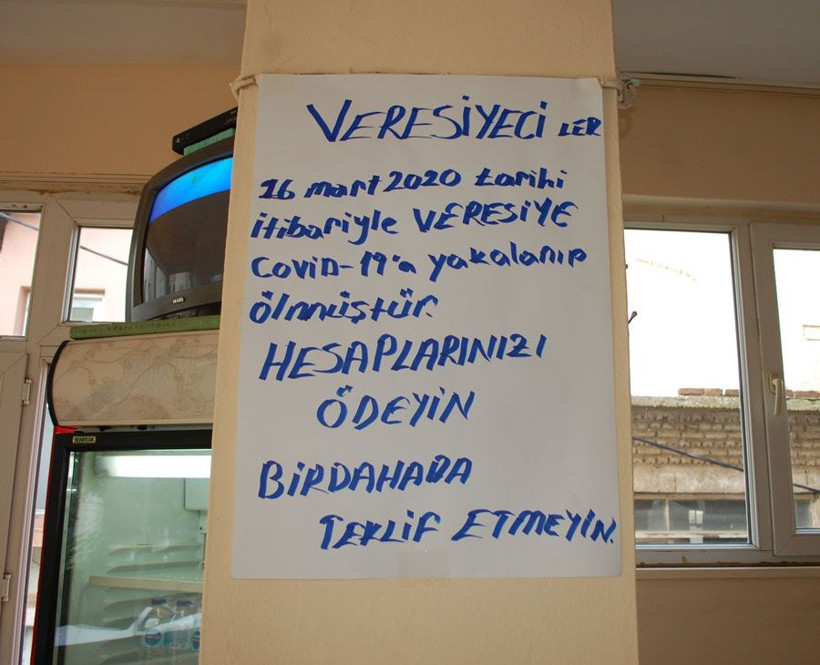 VERESİYECİLER
16 mart 2020 tarihi
itibariyle VERESİYE
Covid-19'a yakalanıp
ölmüştür.
HESAPLARINIZI
ÖDEYİN
BİRDAHADA
TEKLİF ETMEYİN.